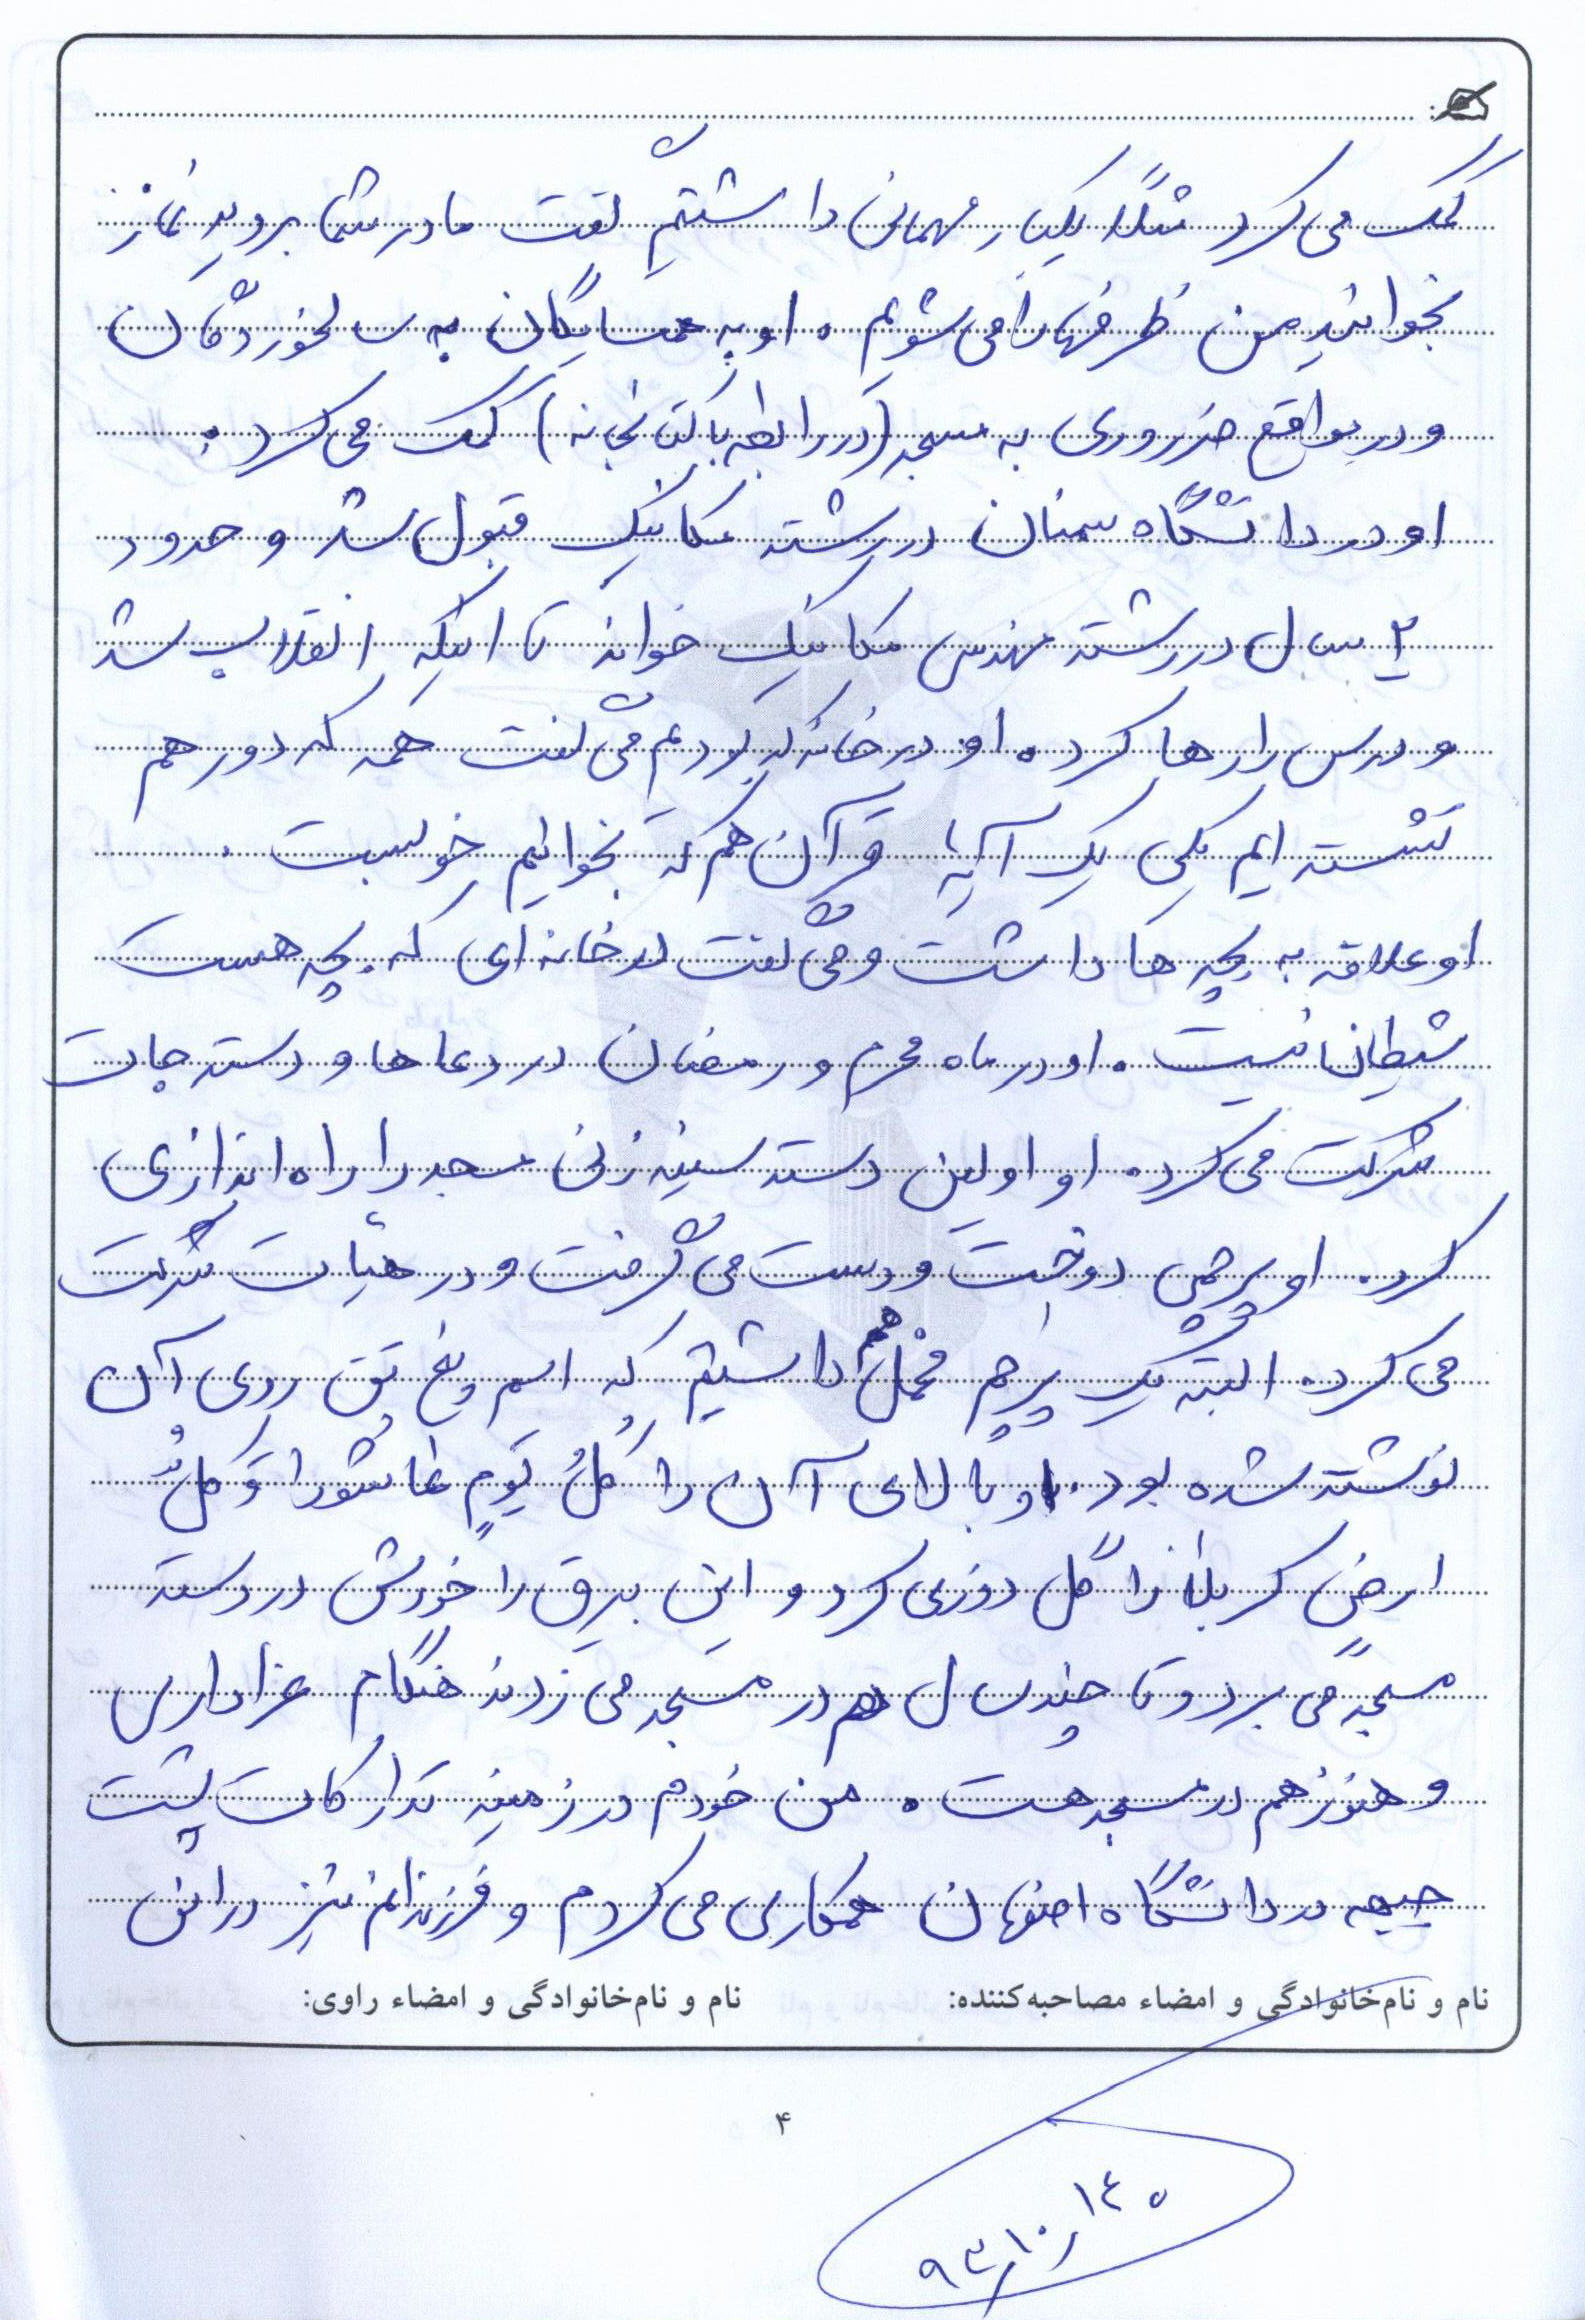 کمک می کرد مثلاً یکبار مهمانی داشتیم گفت مادر شما بروید نماز
بخوانید من ظرفها را می شویم . او به همسایگان به سالخوردگان
و در مواقع ضروری به مسجد (در رابطه با کتابخانه) کمک می کرد .
او در دانشگاه سمنان در رشته مکانیک قبول شد و حدود
۲ سال در رشته مهندسی مکانیک خواند تا اینکه انقلاب شد
و درس را رها کرد. او در خانه که بودیم می گفت همه که دور هم
نشسته ایم یکی یک آیه قرآن هم که بخوانیم خوبست .
او علاقه به بچه ها داشت و می گفت در خانه ای که بچه هست
شیطان نیست . او در ماه محرم و رمضان در دعاها و دسته جات
شرکت می کرد. او اولین دسته سینه زنی مسجد را راه اندازی
کرد. او پرچمی دوخت و دست می گرفت و در هیأت شرکت
می کرد. البته یک پرچم مخمل هم داشتیم که اسم پنج تن روی آن
نوشته شده بود. او بالای آن را کُلُ یَومٍ عاشورا وَ کلُ
ارضٍ کربلا را گل دوزی کرد و این بیرق را خودش در دسته
مسجد می برد و تا چند سال هم در مسجد می زدند هنگام عزاداری
و هنوز هم در مسجد هست . من خودم در زمینه تدارکات پشت
جبهه در دانشگاه اصفهان همکاری می کردم و فرزندانم نیز در این
نام و نام‌خانوادگی و امضاء مصاحبه‌کننده: نام و نام‌خانوادگی و امضاء راوی:
۴
۱٤۵
۹۳/۱۰/